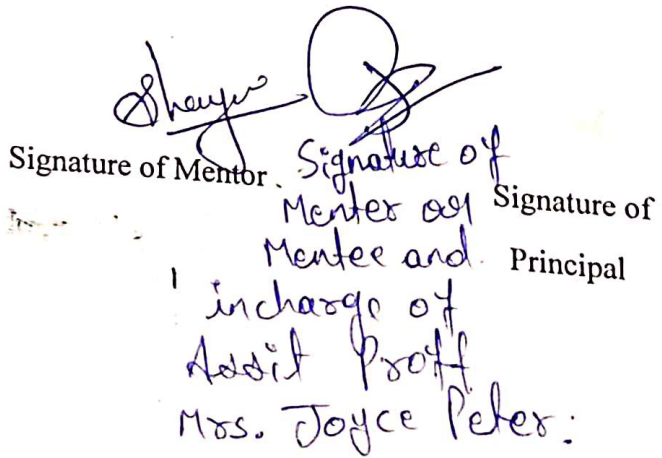 Signature of Mentor.
Signature of
Menter or
Mentee and
incharge of
Assit Proff
Mrs. Joyce Peter:
Signature of
Principal